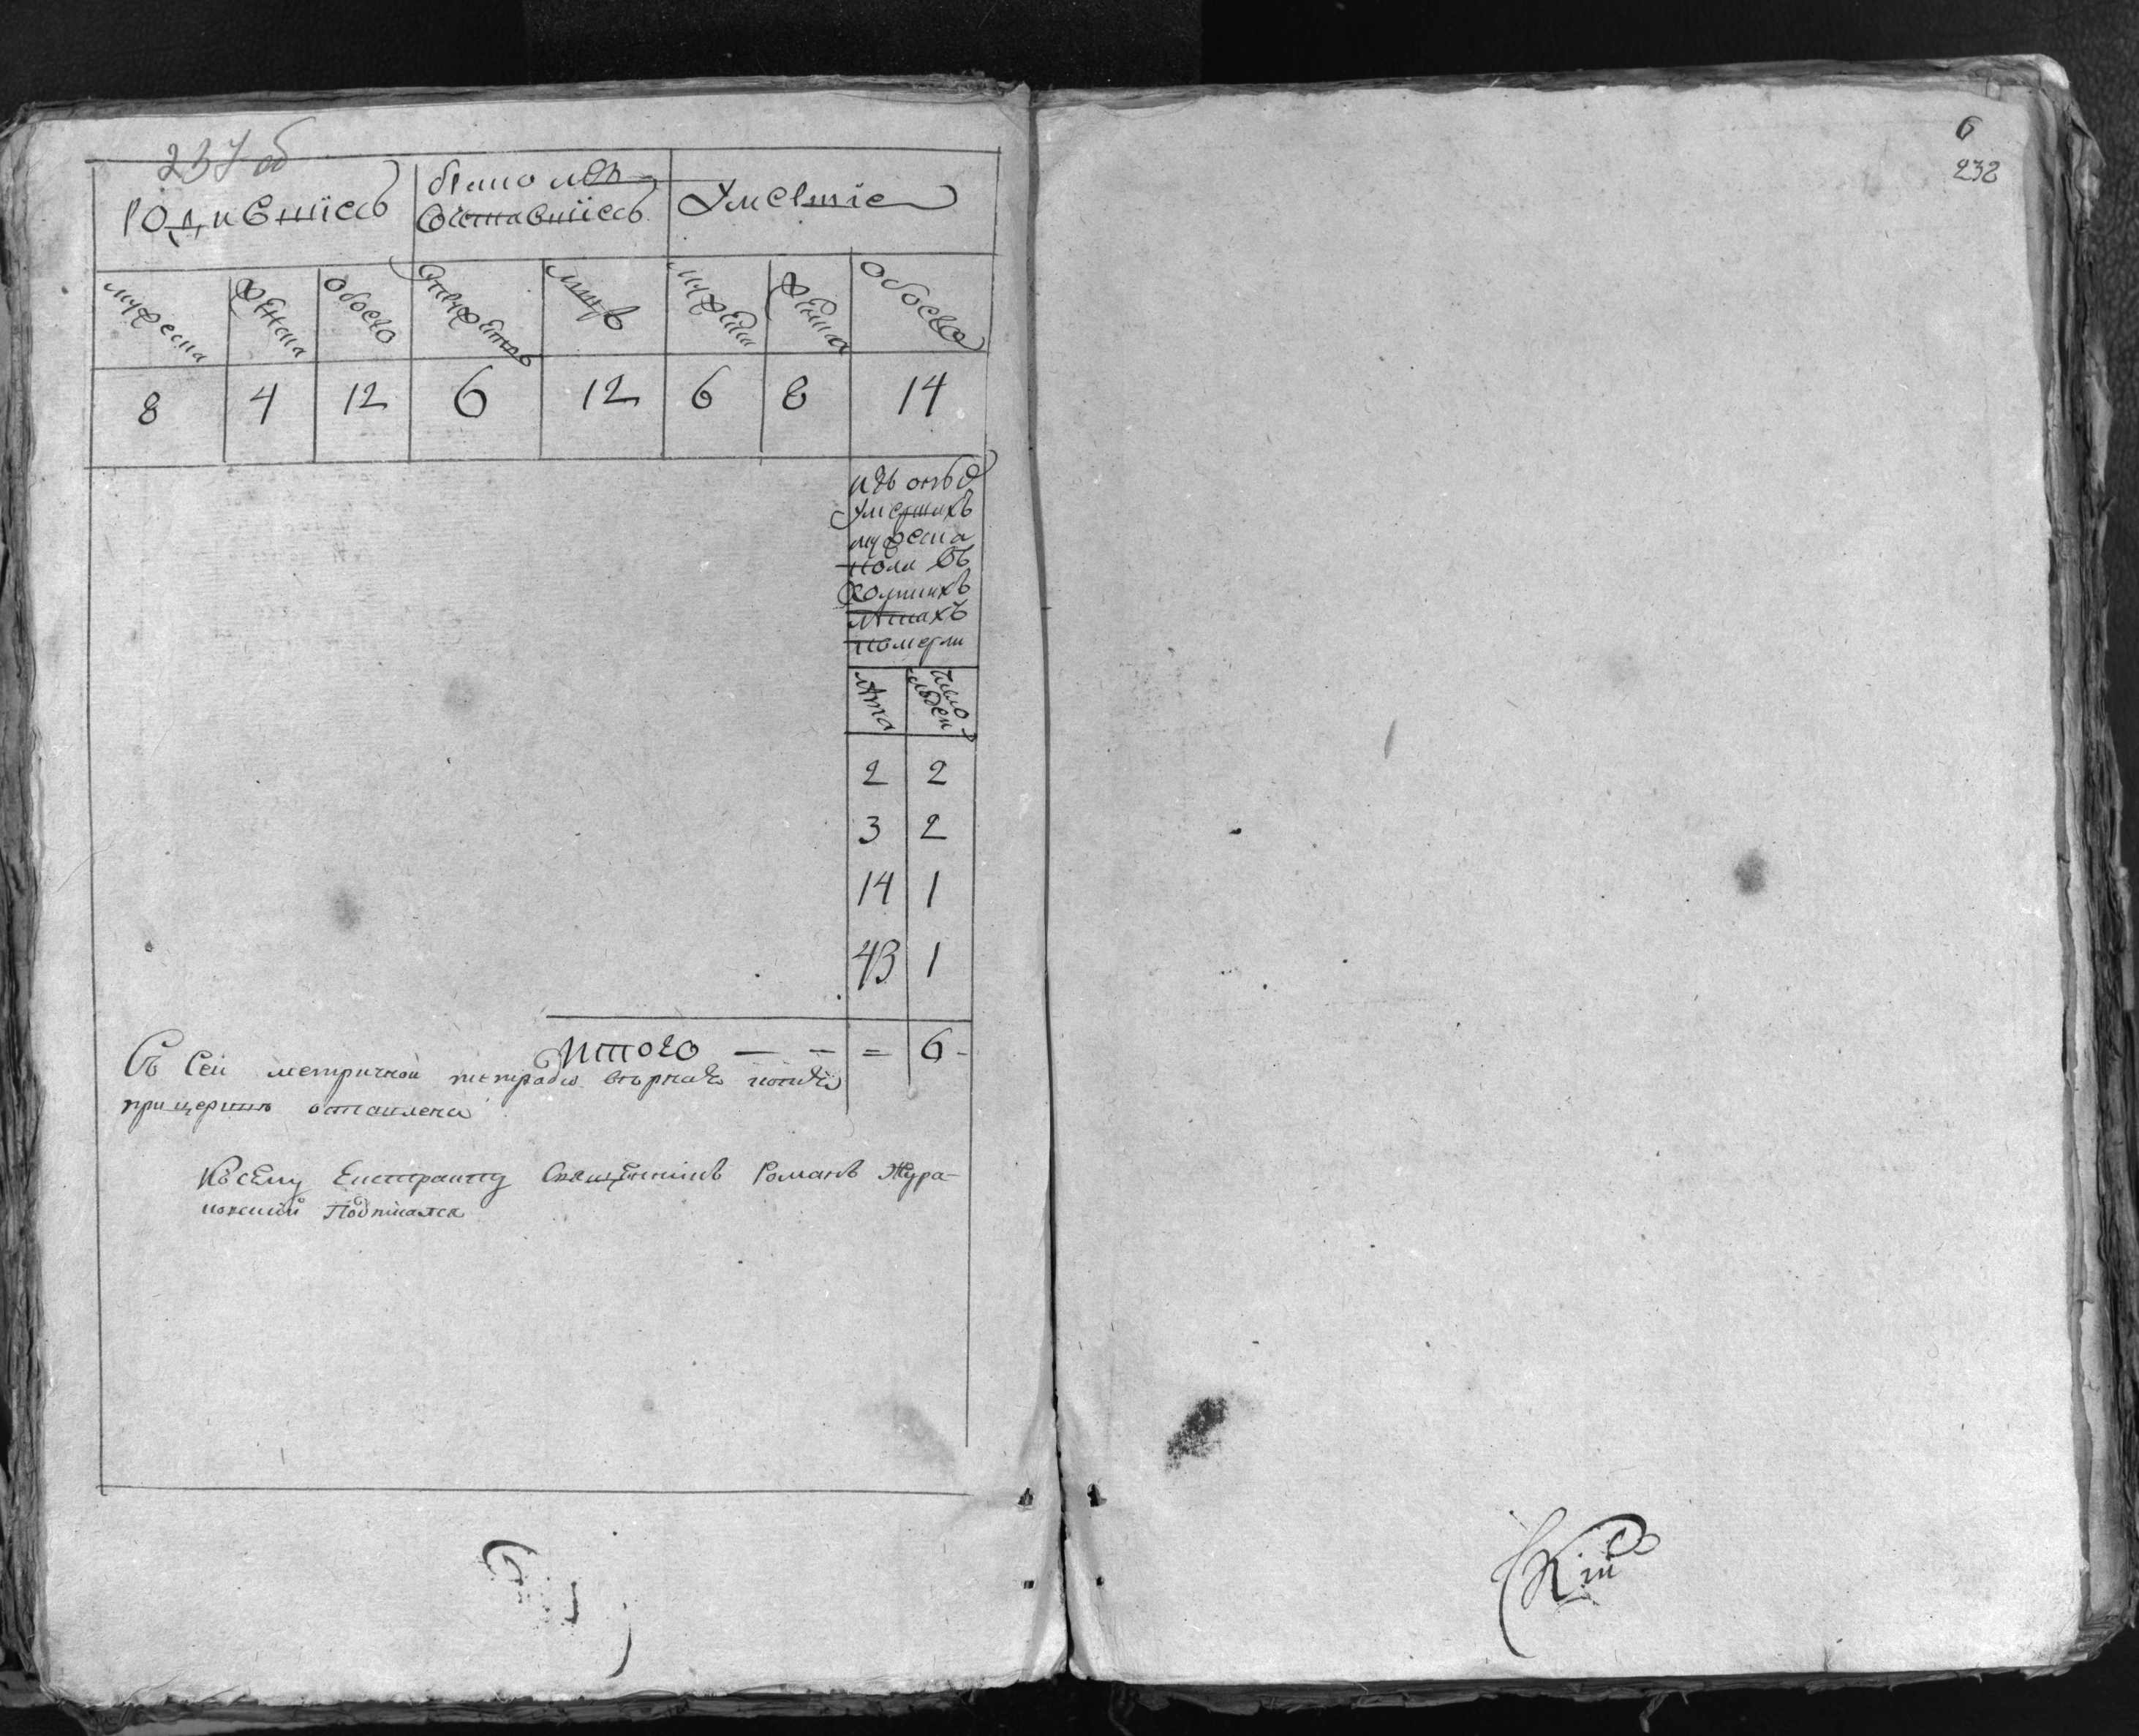 237 об
Родившiесь
браком
Сочетавшiесь
Умершiе
мужеска
женска
обоего
мужеска
женска
обоего
8 4 12 6 12 6 8 14
умершихъ
мужеска
пола въ
лѣтахъ
померли
лѣта
число людей
2 2
3 2
14 1
43 1
Итого — — = 6 -
Съ Сей метричной тетради копія
при церкви оставлена
Ксему Екстракту Священникъ Романъ Жура-
ковский Подписался
6
232
кiй